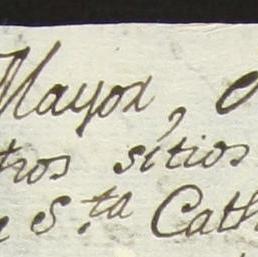 Mayor,
tros sitios
e S.ta Cath